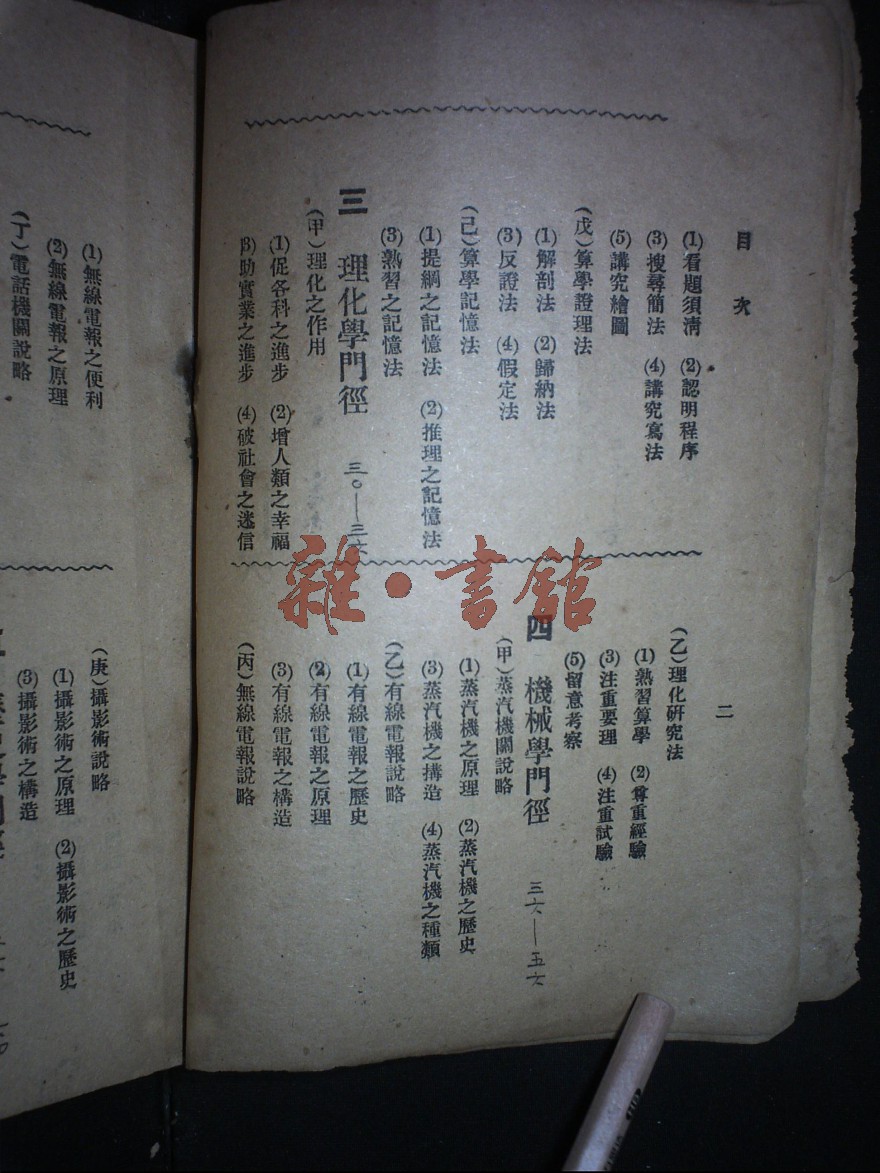 目 次
(1)看題須淸 (2)認明程序
(3)搜尋簡法 (4)講究寫法
(5)講究繪圖
(戊)算學證理法
(1)解剖法 (2)歸納法
(3)反證法 (4)假定法
(己)算學記憶法
(1)提綱之記憶法 (2)推理之記憶法
(3)熟習之記憶法
三 理化學門徑 三〇—三六
(甲)理化之作用
(1)促各科之進步 (2)增人類之幸福
β)助實業之進步 (4)破社會之迷信
二
(乙)理化研究法
(1)熟習算學 (2)尊重經驗
(3)注重要理 (4)注重試驗
(5)留意考察
四 機械學門徑 三六—五六
(甲)蒸汽機關說略
(1)蒸汽機之原理 (2)蒸汽機之歷史
(3)蒸汽機之搆造 (4)蒸汽機之種類
(乙)有線電報說略
(1)有線電報之歷史
(2)有線電報之原理
(3)有線電報之構造
(丙)無線電報說略
(1)無線電報之便利
(2)無線電報之原理
(丁)電話機關說略
(庚)攝影術說略
(1)攝影術之原理 (2)攝影術之歷史
(3)攝影術之構造
雜·書館